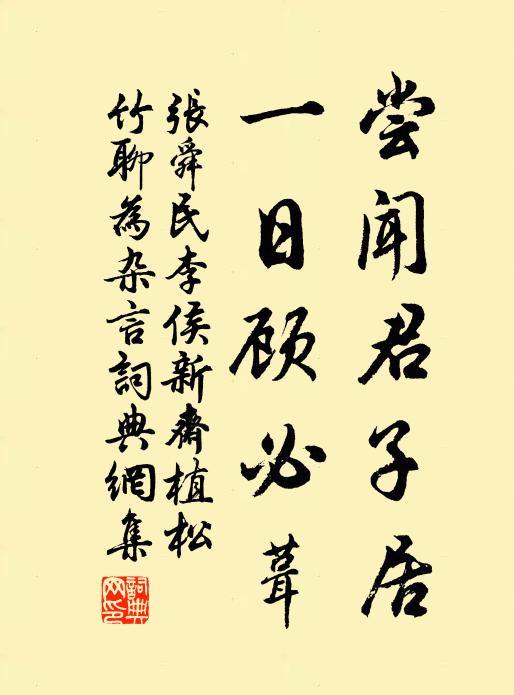 尝闻君子居
一日顾必葺
張舜民李侯新齋植松
竹聊為杂言詞典網集
詞典网印